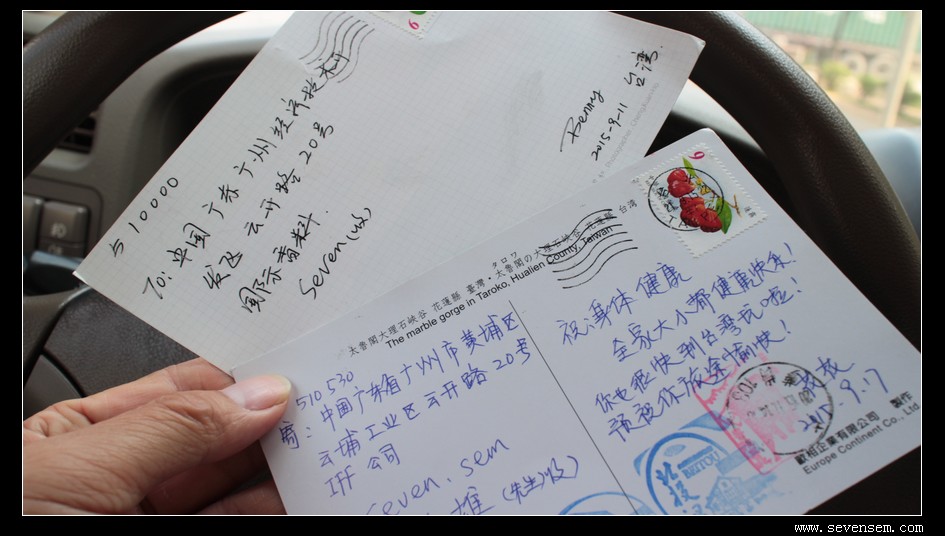 510000
To: 中国 广东 广州 经济技术
发区 云开路 20号
国际香料.
Seven
Benny
2015-9-11 台湾.
太魯閣大理石峽谷 花蓮縣 臺灣・太魯閣の大理石峽谷 花蓮縣 台湾
タロコ
The marble gorge in Taroko, Hualien County, Taiwan
510530
寄: 中国广东省广州市黄埔区
云埔工业区云开路20号
IFF 公司
Seven.sem
雄 (先生收)
祝: 身体健康
全家大小都健康快乐!
你也很快到台湾玩啦!
预祝你旅途愉快!
2015.9.17
6
6
北投
BEITOU
歐洲企業有限公司 製作
Europe Continent Co., Ltd
www.sevensem.com